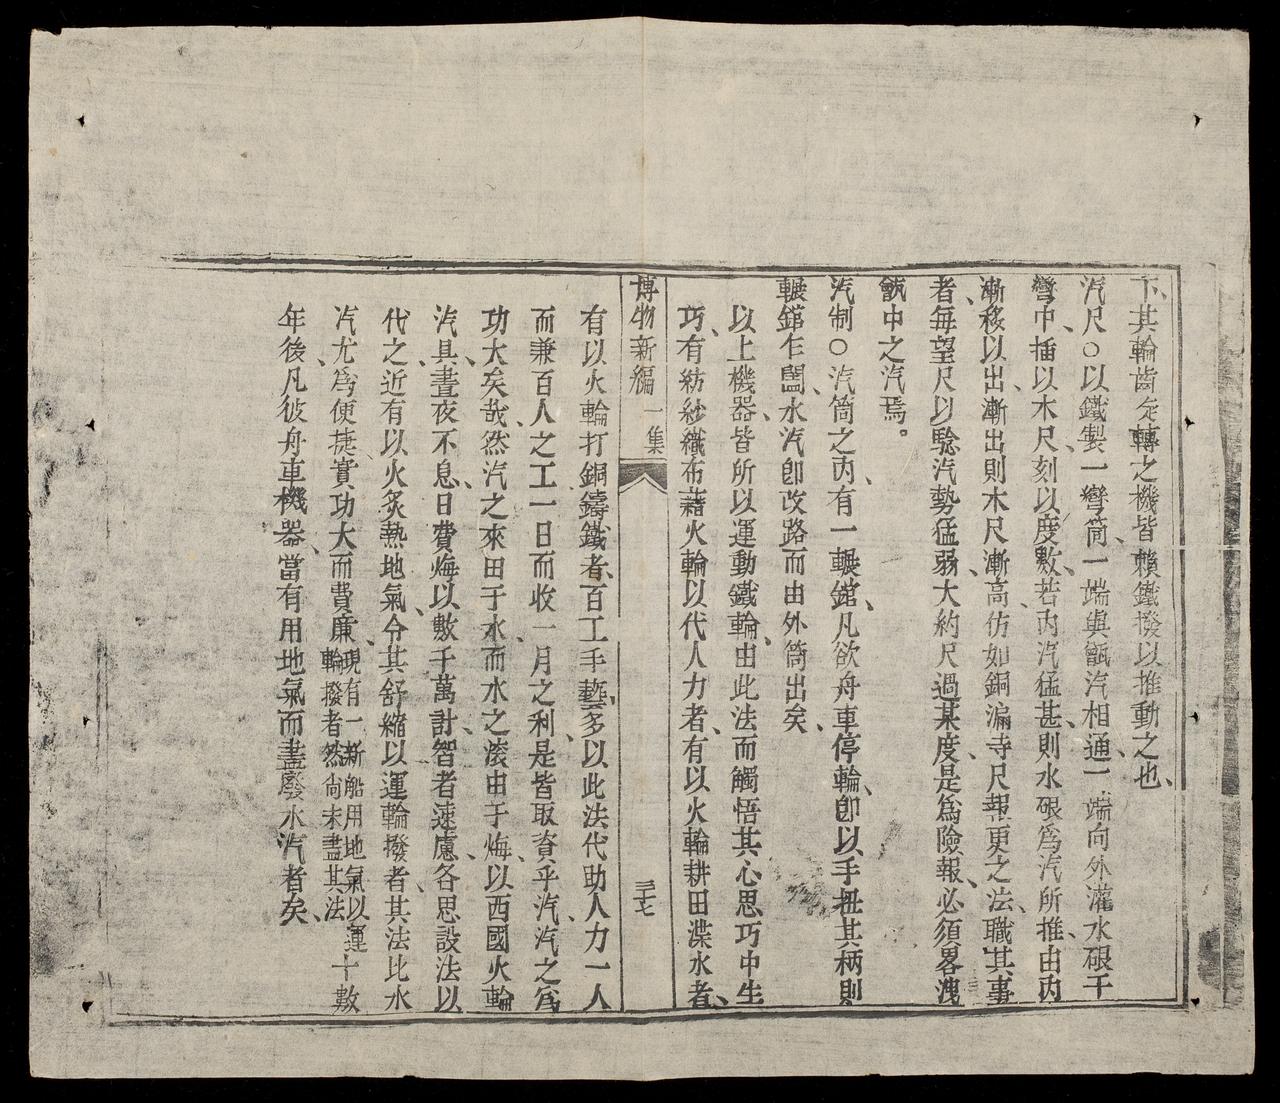 下、其輪齒旋轉之機皆賴鐵撥以推動之也、
汽尺○以鐵製一彎筒、一端與甑汽相通、一端向外灌水硍于
彎中、插以木尺、刻以度數、若內汽猛甚、則水硍爲汽所推、由內
漸移以出、漸出則木尺漸高、仿如銅漏寺尺報更之法、職其事
者、每望尺以騐汽勢猛弱、大約尺過某度、是爲險報、必須畧洩
甑中之汽焉。
汽制○汽筒之內、有一輾鎺、凡欲舟車停輪、卽以手扭其柄、則
輾鎺乍闔、水汽卽改路而由外筒出矣、
以上機器、皆所以運動鐵輪、由此法而觸悟其心思、巧中生
巧、有紡紗織布、藉火輪以代人力者、有以火輪耕田澟水者、
博物新編 一集 三十七
有以火輪打銅鑄鐵者、百工手藝、多以此法代助人力、一人
而兼百人之工、一日而收一月之利、是皆取資乎汽、汽之爲
功大矣哉、然汽之來由于水、而水之滚由于煤、以西國火輪
汽具、晝夜不息、日費煤以數千萬計、智者速慮、各思設法以
代之、近有以火炙熱地氣、令其舒縮以運輪撥者、其法比水
汽尤爲便捷、實功大而費廉、現有一新船用地氣以運輪撥者然尙未盡其法十數
年後、凡彼舟車機器、當有用地氣而盡廢水汽者矣、